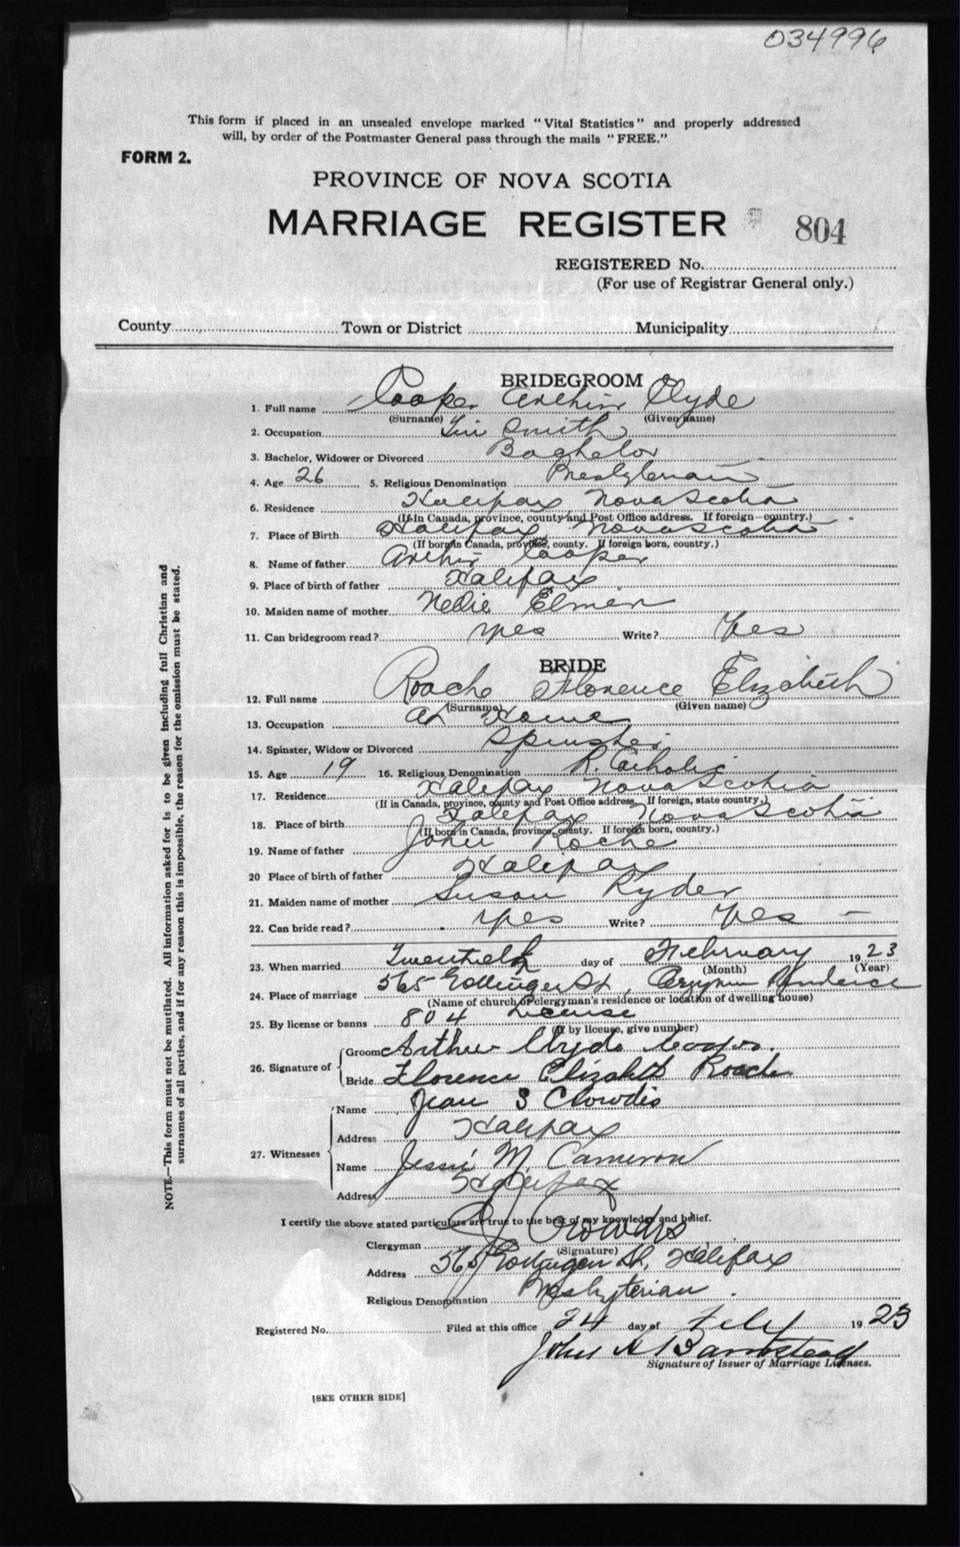 034996
This form if placed in an unsealed envelope marked "Vital Statistics" and properly addressed
will, by order of the Postmaster General pass through the mails "FREE."
FORM 2.
PROVINCE OF NOVA SCOTIA
MARRIAGE REGISTER 804
REGISTERED No.
(For use of Registrar General only.)
County Town or District Municipality
BRIDEGROOM
1. Full name Cooper Arthur Clyde
(Surname) (Given name)
2. Occupation Tin Smith
3. Bachelor, Widower or Divorced Bachelor
4. Age 26 5. Religious Denomination Presbyterian
6. Residence Halifax Nova Scotia
(If in Canada, province, county and Post Office address. If foreign country.)
7. Place of Birth Halifax Nova Scotia
(If born in Canada, province, county. If foreign born, country.)
8. Name of father Arthur Cooper
9. Place of birth of father Halifax
10. Maiden name of mother Nellie
11. Can bridegroom read? Yes Write? Yes
BRIDE
12. Full name Roache Florence Elizabeth
(Surname) (Given name)
13. Occupation At Home
14. Spinster, Widow or Divorced Spinster
15. Age 19 16. Religious Denomination R. Catholic
17. Residence Halifax Nova Scotia
(If in Canada, province, county and Post Office address. If foreign, state country.)
18. Place of birth Halifax Nova Scotia
(If born in Canada, province, county. If foreign born, country.)
19. Name of father John Roche
20 Place of birth of father Halifax
21. Maiden name of mother Susan Ryder
22. Can bride read? Yes Write? Yes —
23. When married Twentieth day of February 1923
(Month) (Year)
24. Place of marriage 565 Gottingen St,
(Name of church or clergyman's residence or location of dwelling house)
25. By license or banns 804 License
(If by license, give number)
26. Signature of
Groom Arthur Clyde Cooper.
Bride Florence Elizabeth Roache
27. Witnesses
Name Jean S Clowdis
Address Halifax
Name Jessie M. Cameron
Address Halifax
I certify the above stated particulars are true to the best of my knowledge and belief.
Clergyman
(Signature)
Address 565 Gottingen St, Halifax
Religious Denomination Presbyterian.
Registered No. Filed at this office 24 day of Feby 1923
John A Barnstead
Signature of Issuer of Marriage Licenses.
[SEE OTHER SIDE]
NOTE—This form must not be mutilated. All information asked for is to be given including full Christian and
surnames of all parties, and if for any reason this is impossible, the reason for the omission must be stated.